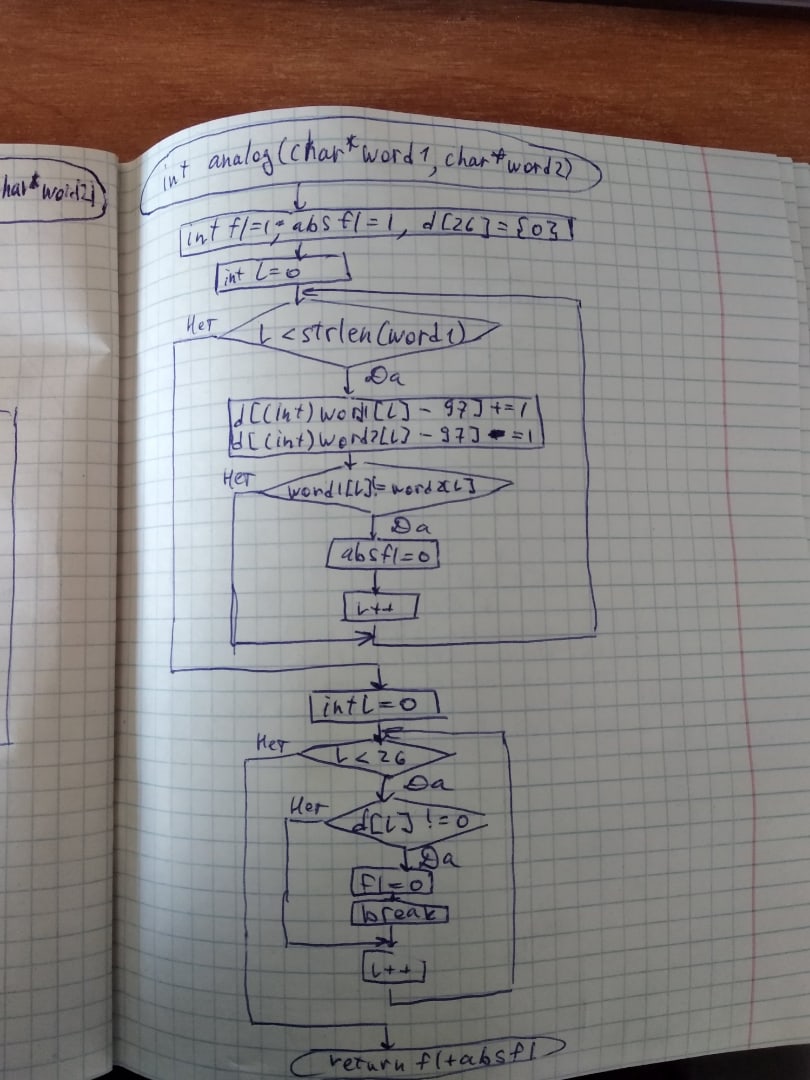 har*word2)
int analog(char*word1, char*word2)
int fl=1; absfl=1, d[26]={0}
int i=0
Нет
i<strlen(word1)
Да
d[(int)word1[i]-97]+=1
d[(int)word2[i]-97]-=1
Нет
word1[i]!=word2[i]
Да
absfl=0
i++
int i=0
Нет
i<26
Да
Нет
d[i]!=0
Да
fl=0
break
i++
return fl+absfl